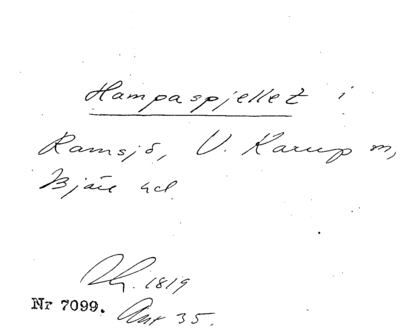 Hampaspjellet i
Ramsjö, V. Karup sn,
Bjäre hd
1819
Nr 7099. Ant 35.